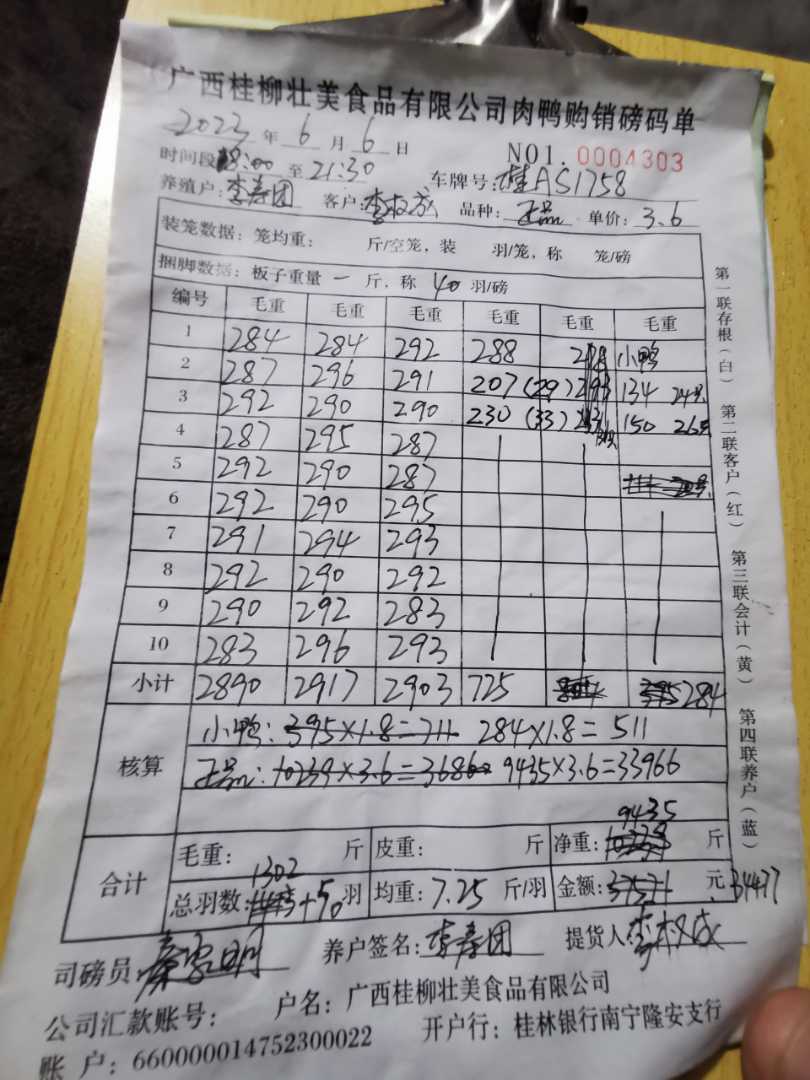 广西桂柳壮美食品有限公司肉鸭购销磅码单
2023年6月6日 NO1.0004303
时间段18:00至21:30 车牌号:桂AS1758
养殖户:李寿团 客户:李权成 品种:正品 单价:3.6
装笼数据:笼均重: 斤/空笼,装 羽/笼,称 笼/磅
捆脚数据:板子重量 一 斤,称 40 羽/磅
编号 毛重 毛重 毛重 毛重 毛重 毛重
1 284 284 292 288 小鸭
2 287 296 291 207(29) 134 24只
3 292 290 290 230(33) 150 26只
4 287 295 287
5 292 290 287
6 292 290 295
7 291 294 293
8 292 290 292
9 290 292 283
10 283 296 293
小计 2890 2917 2903 725 284
核算 小鸭:395×1.8=711 284×1.8=511
正品:10239×3.6=36860 9435×3.6=33966
合计 毛重: 斤 皮重: 斤 净重:9435斤
总羽数:1302+50羽 均重:7.25斤/羽 金额:元34477
司磅员:秦家明 养户签名:李寿团 提货人:李权成
公司汇款账号: 户名:广西桂柳壮美食品有限公司
账 户:660000014752300022 开户行:桂林银行南宁隆安支行
第一联存根(白) 第二联客户(红) 第三联会计(黄) 第四联养户(蓝)